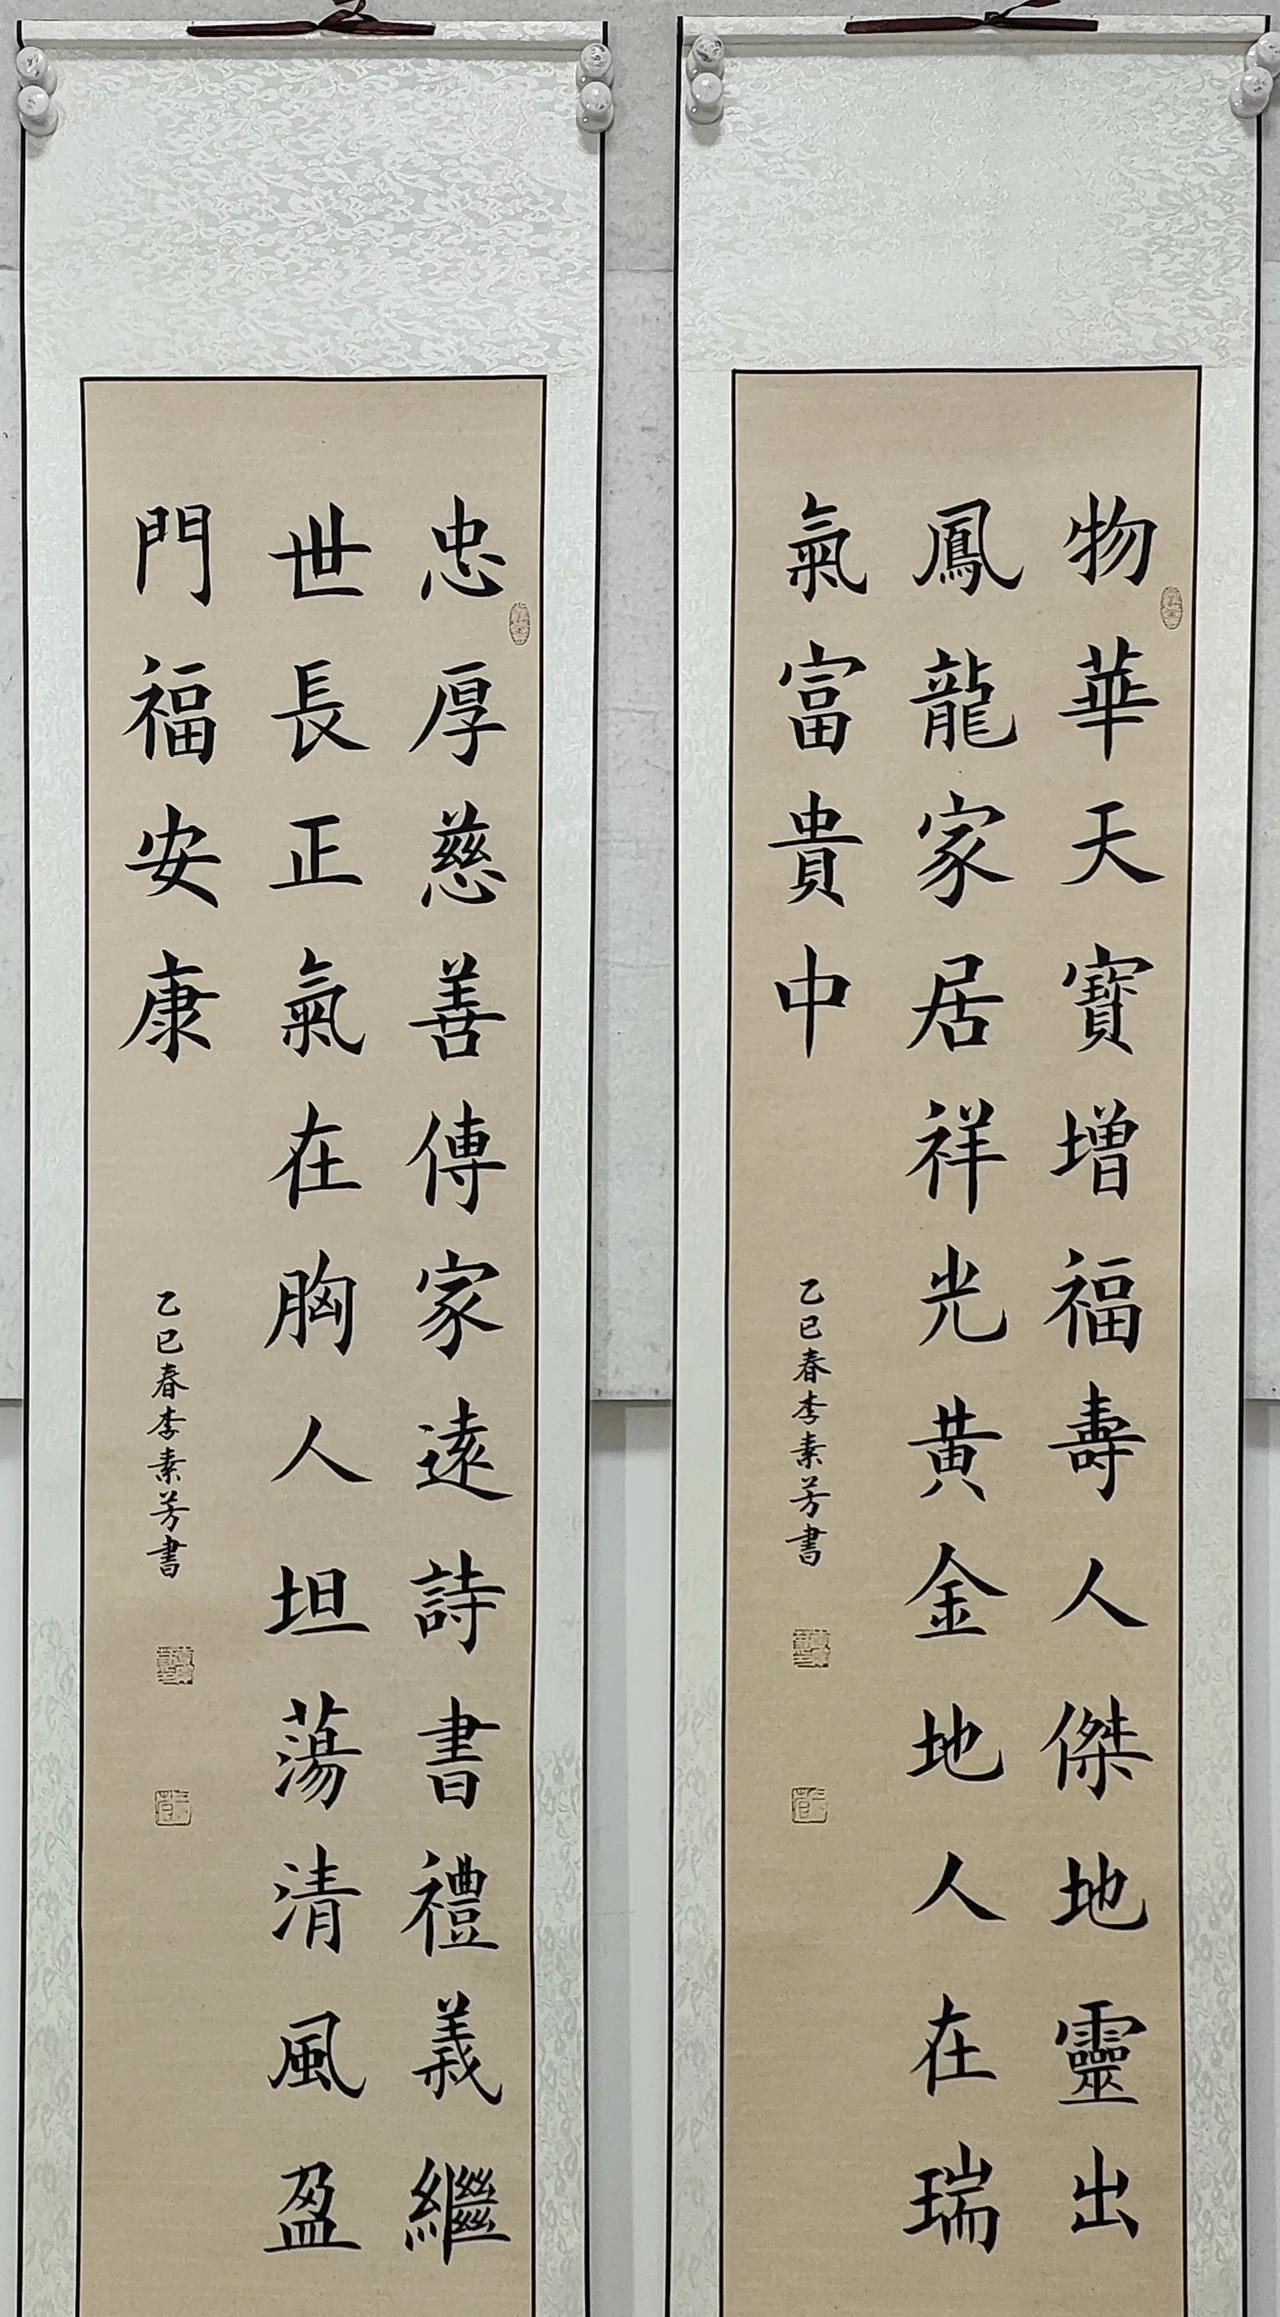 物華天寶增福壽人傑地靈出
鳳龍家居祥光黄金地人在瑞
氣富貴中
乙巳春李素芳書
忠厚慈善傳家遠詩書禮義繼
世長正氣在胸人坦蕩清風盈
門福安康
乙巳春李素芳書